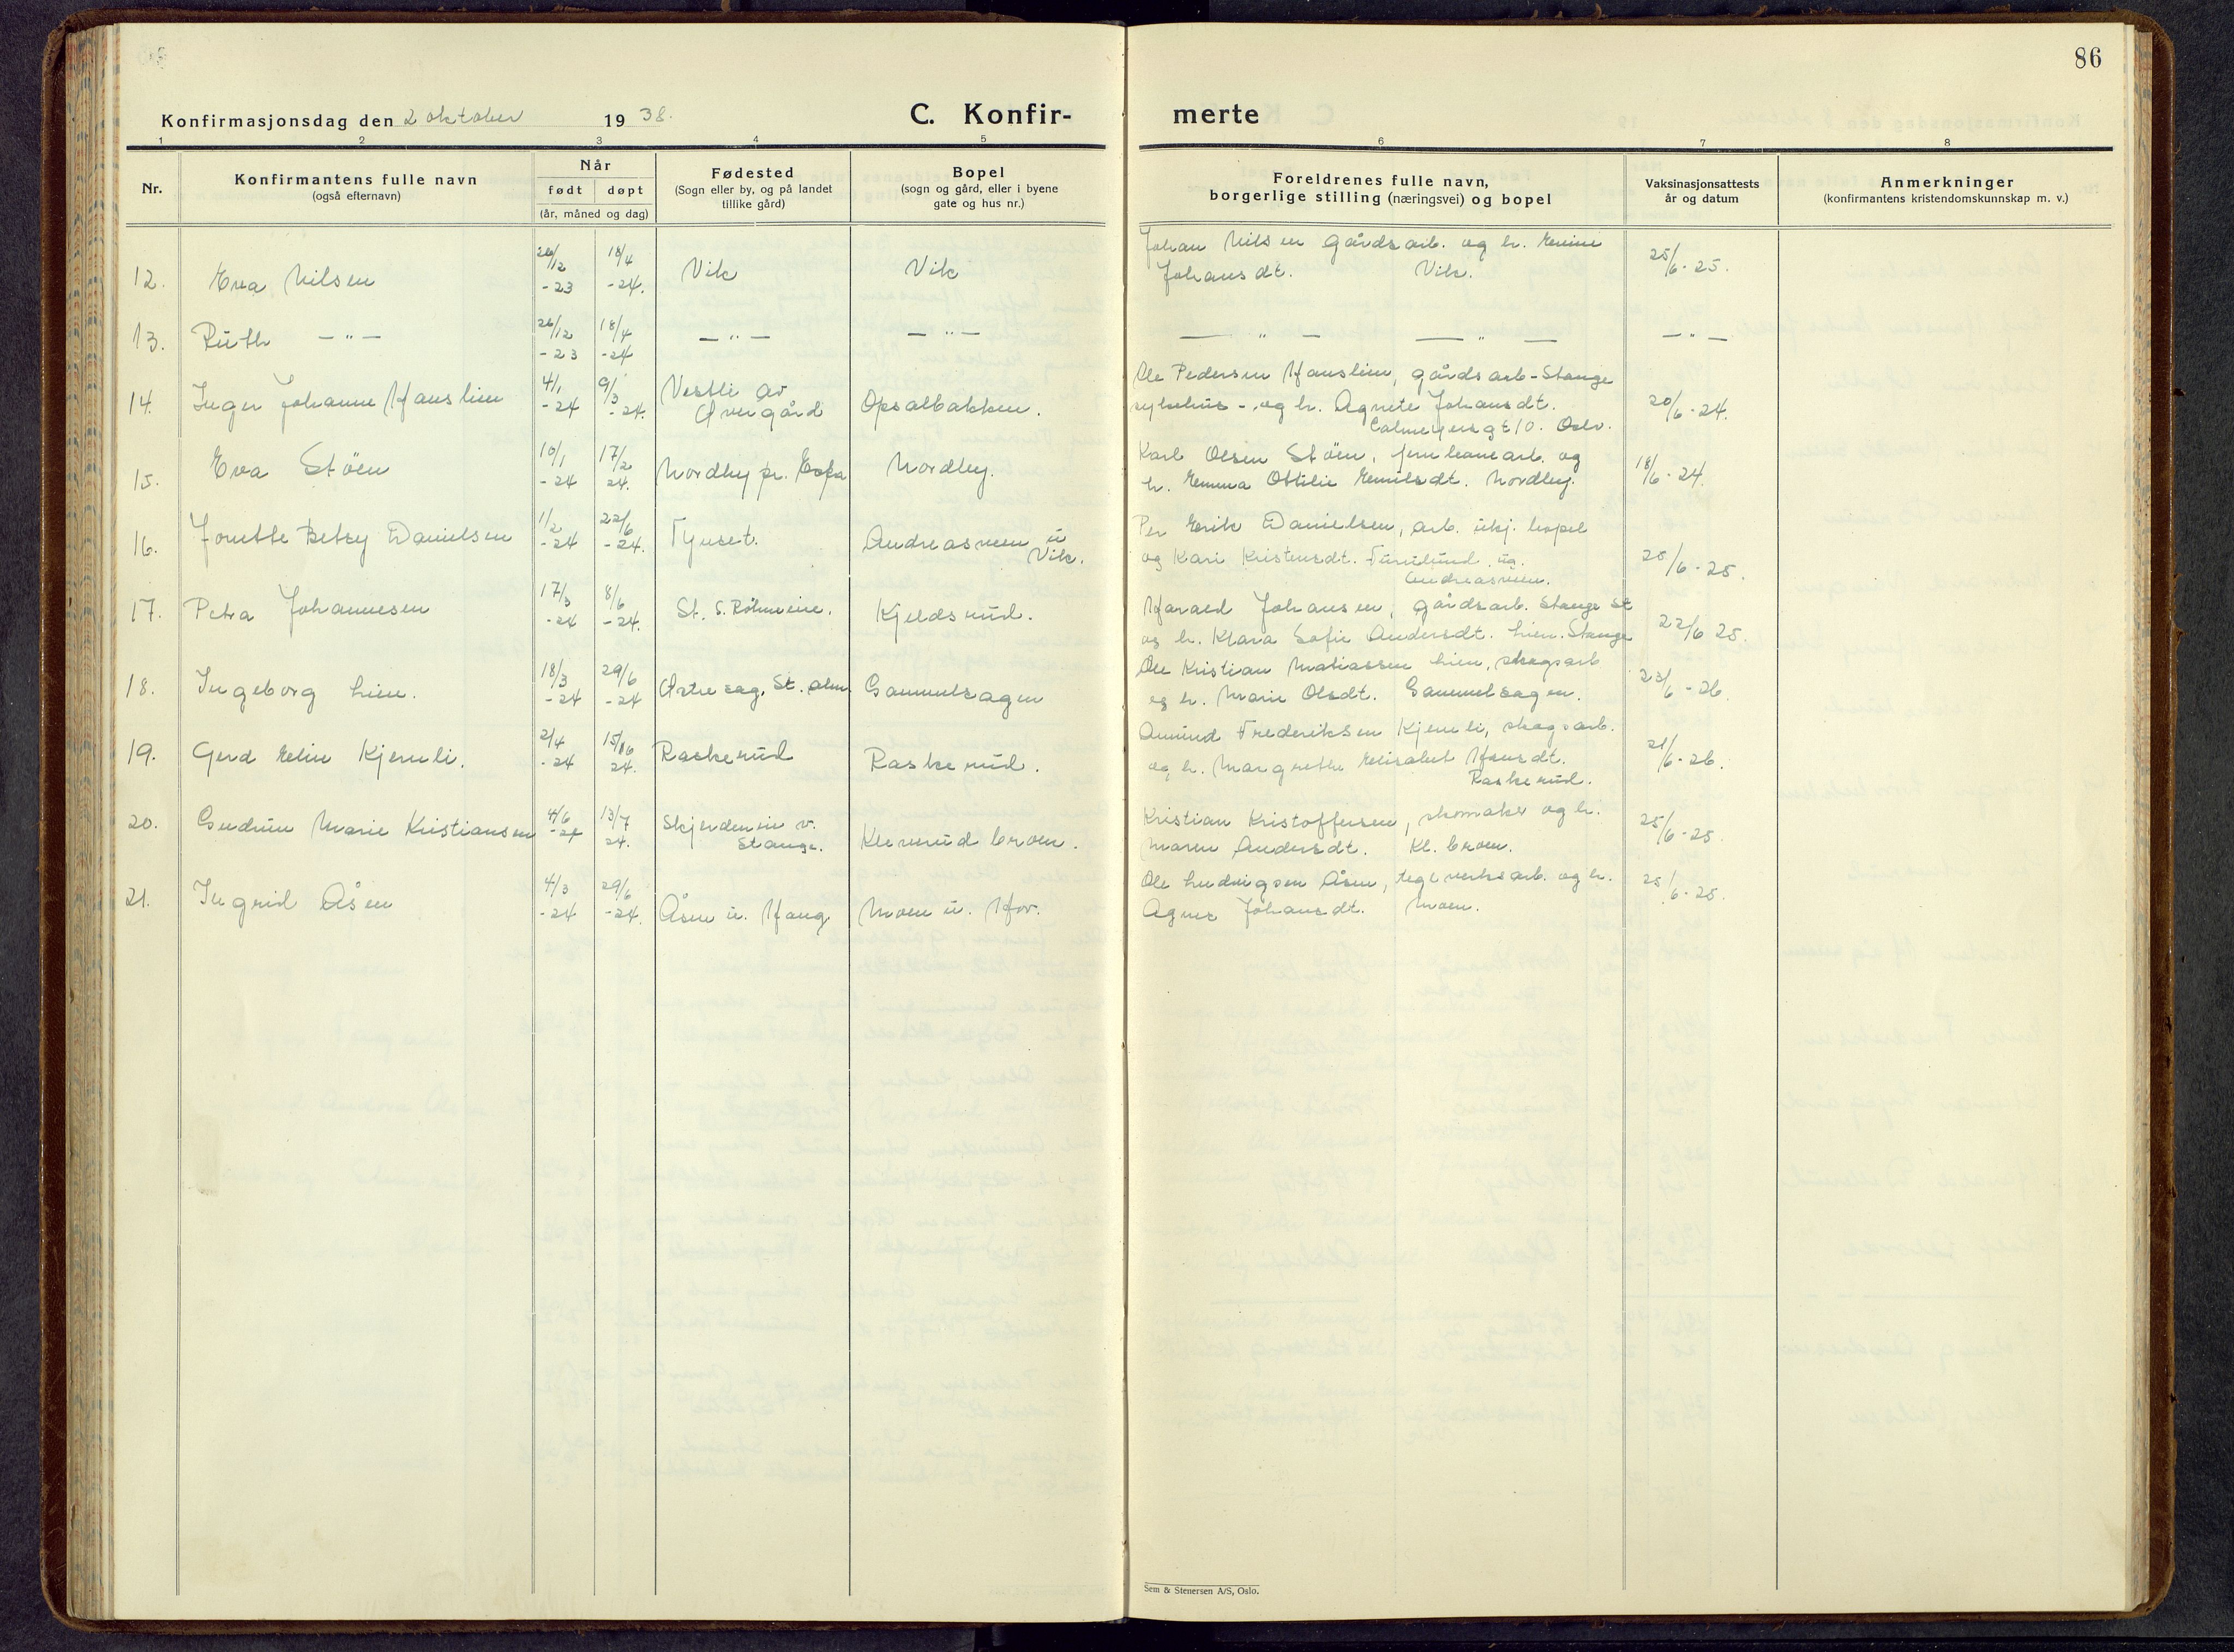 86
Konfirmasjonsdag den 2 oktober 1938.
C. Konfir-
merte
1 2 3 4 5 6 7 8
Nr.
Konfirmantens fulle navn
(også efternavn)
Når
født døpt
(år, måned og dag)
Fødested
(Sogn eller by, og på landet
tillike gård)
Bopel
(sogn og gård, eller i byene
gate og hus nr.)
Foreldrenes fulle navn,
borgerlige stilling (næringsvei) og bopel
Vaksinasjonsattests
år og datum
Anmerkninger
(konfirmantens kristendomskunnskap m. v.)
12. Eva Nilsen 26/12 -23 18/4 -24. Vik Vik
Johan Nilsen gårdsarb. og h.
Johansdt. Vik.
25/6-25.
13. Ruth —"— 26/12 -23 18/4 -24 —"— —"—
—"— —"— —"—
14. Inger Johanne Hauslien 4/1 -24 9/3 -24. Vestli av Øvergård Opsalbakken.
Ole Pedersen Hauslien, gårdsarb - Stange
sykehus -, og h. Agnete Johansdt.
Calmeyersgt 10. Oslo.
20/6-24.
15. Eva Støen 10/1 -24 17/2 24. Nordby pr. Espa Nordby.
Karl Olsen Støen, jernbanearb. og
h. Emma Ottilie Emilsdt. Nordby.
18/6-24.
16. Jonette Betsy Danielsen 1/2 -24 22/6 -24. Tynset. Andreasveen i Vik.
Per Erik Danielsen, arb. ukj. bopel
og Kari Kristensdt. ug.
Andreasveen.
25/6-25.
17. Petra Johannesen 17/3 -24 8/6 -24. St. S. Røhneeie. Kjeldsrud.
Harald Johansen, gårdsarb. Stange St
og h. Klara Sofie Andersdt. Lien. Stange
22/6 25.
18. Ingeborg Lien. 18/3 -24 29/6 -24 sag, St. alm. Gammelsagen
Ole Kristian Matiassen Lien, skogsarb
og h. Marie Olsdt. Gammelsagen.
23/6-26.
19. Gerd Elin Kjernli. 2/4 -24 15/6 24. Raskerud Raskerud.
Amund Frederiksen Kjernli, skogsarb.
og h. Margrethe Elisabet Hansdt.
Raskerud.
21/6-26.
20. Gudrun Marie Kristiansen 4/6 -24 13/7 24. Skjerdeneie v. Stange. Kleverud broen.
Kristian Kristoffersen, skomaker og h.
Maren Andersdt. Kl. broen.
25/6-25.
21. Ingrid Åsen 4/3 -24 29/6 -24. Åsen u. Haug Moen u. Hov.
Ole Ludvigsen Åsen, teglverksarb. og h.
Agnes Johansdt. Moen.
25/6-25.
Sem & Stenersen A/S, Oslo.